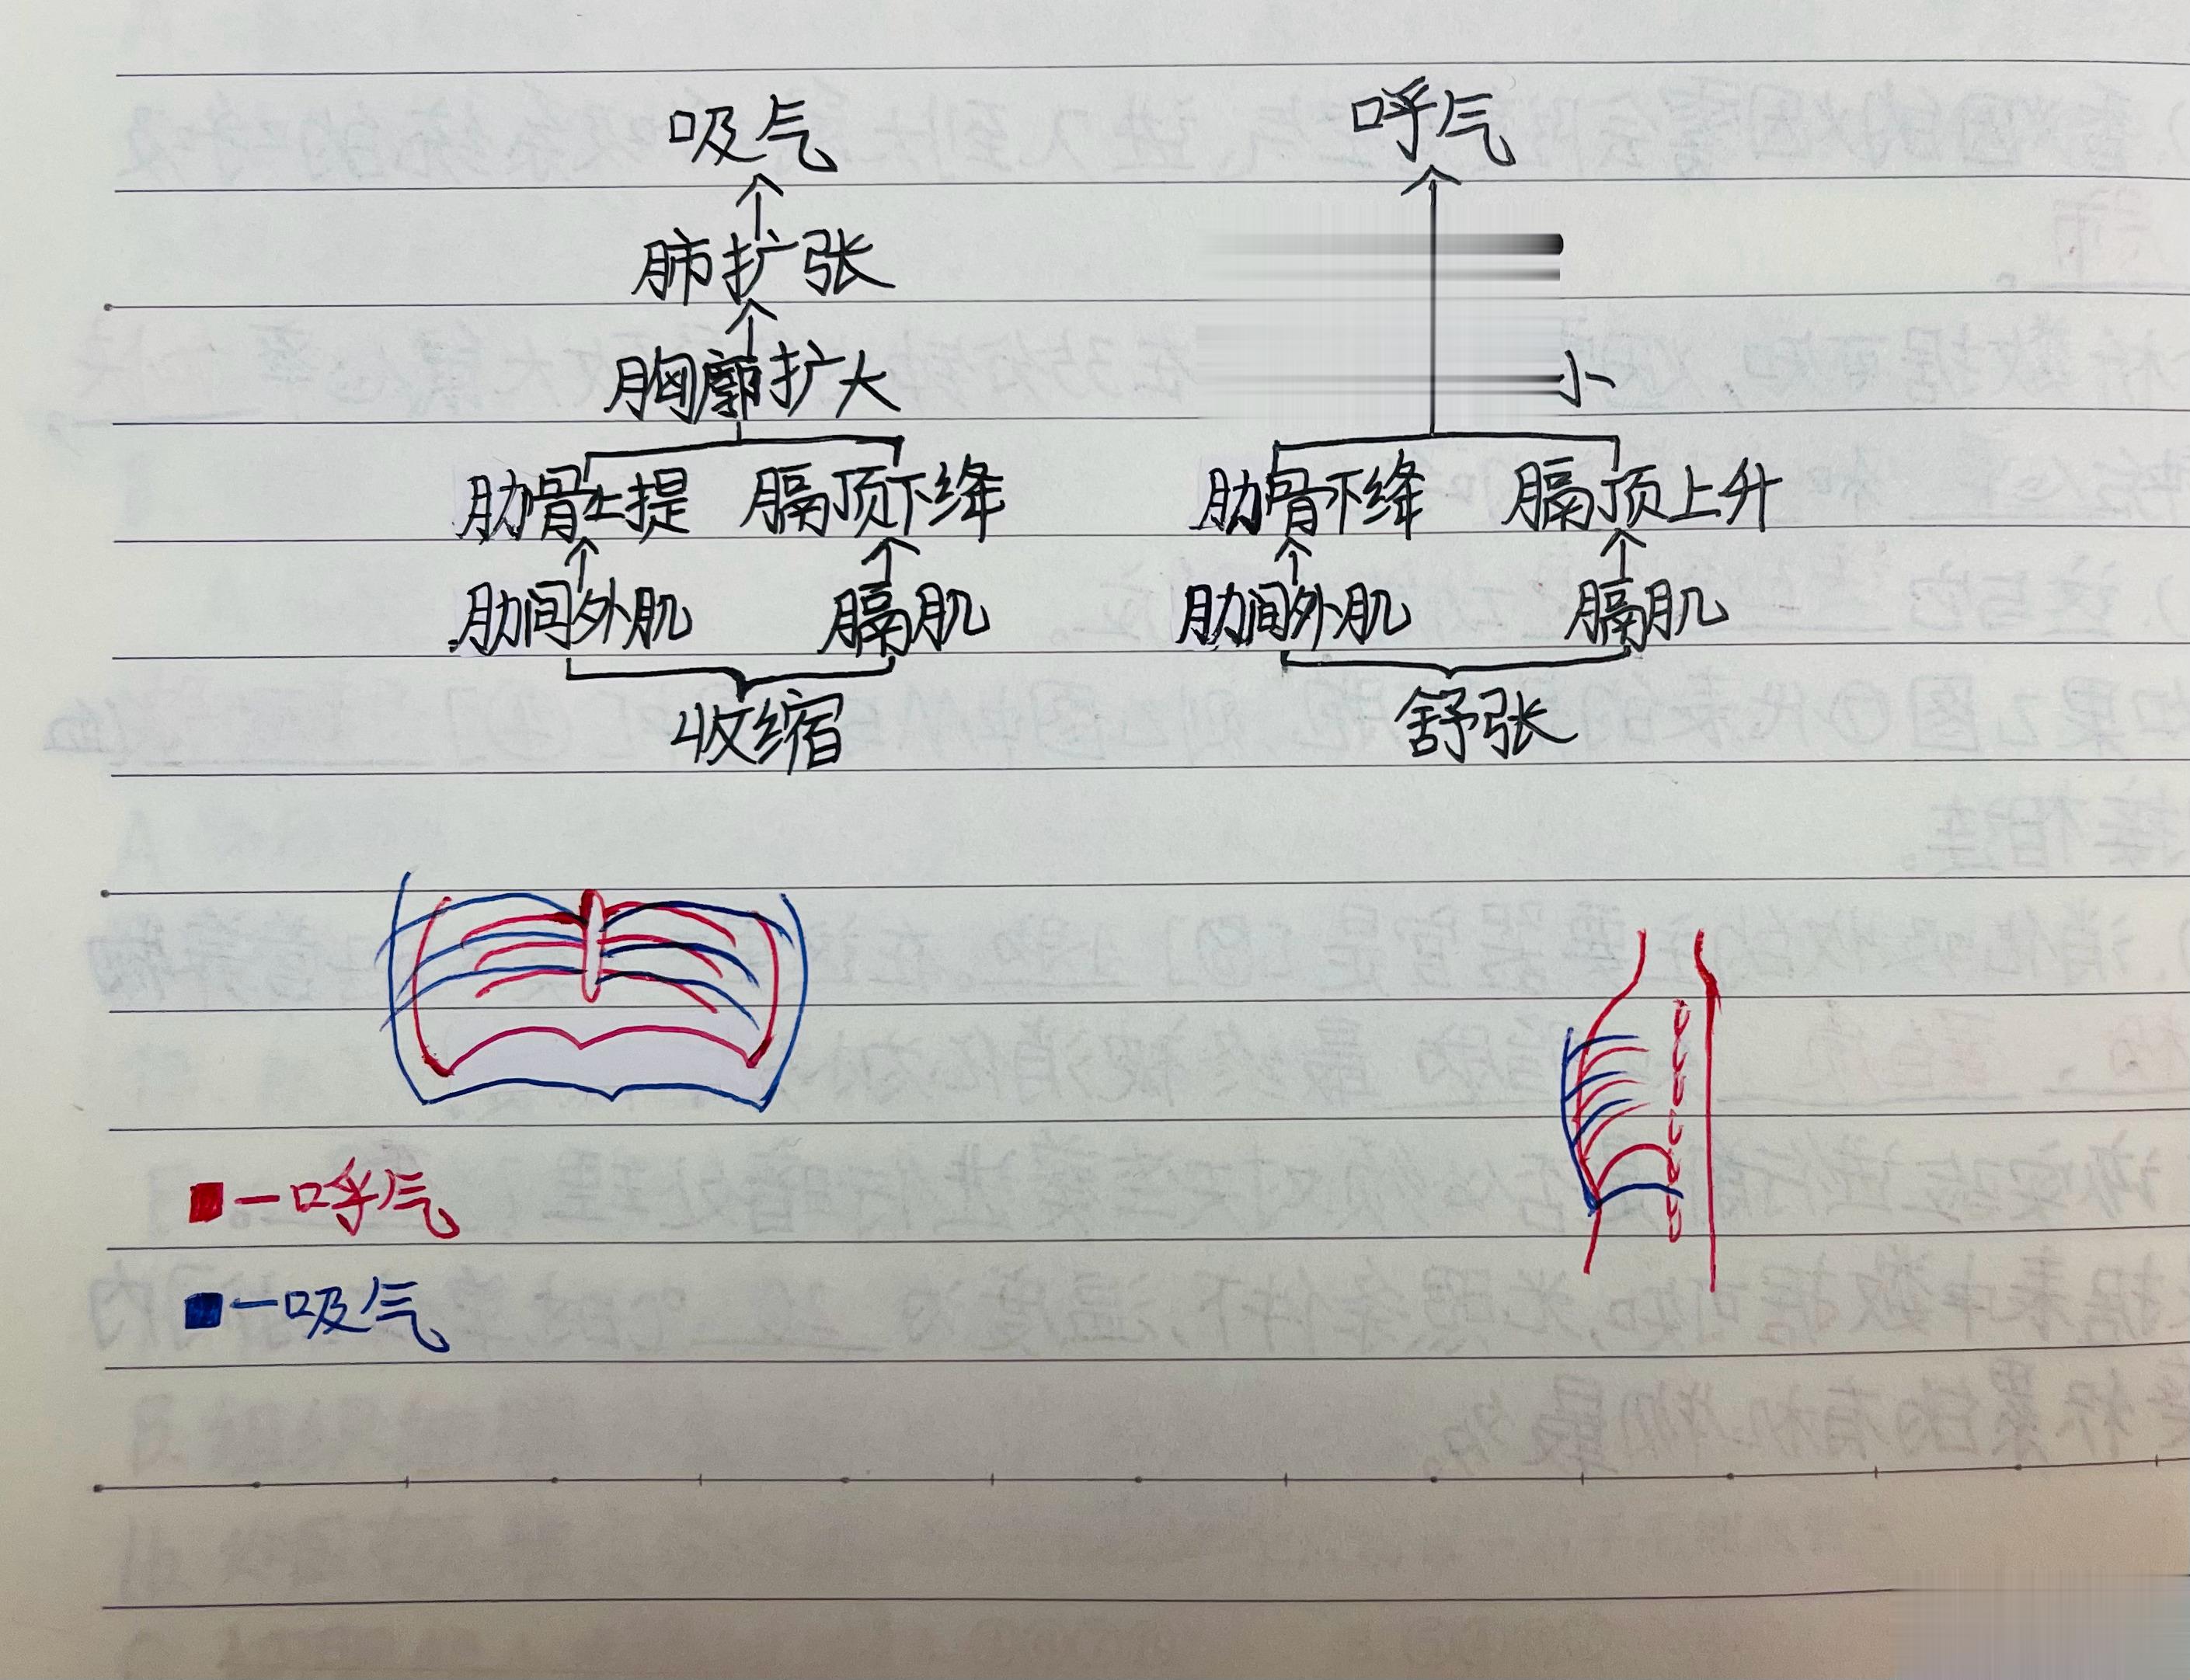 吸气 呼气
肺扩张
胸廓扩大 小
肋骨上提 膈顶下绛 肋骨下绛 膈顶上升
肋间外肌 膈肌 肋间外肌 膈肌
收缩 舒张
一呼气
一吸气